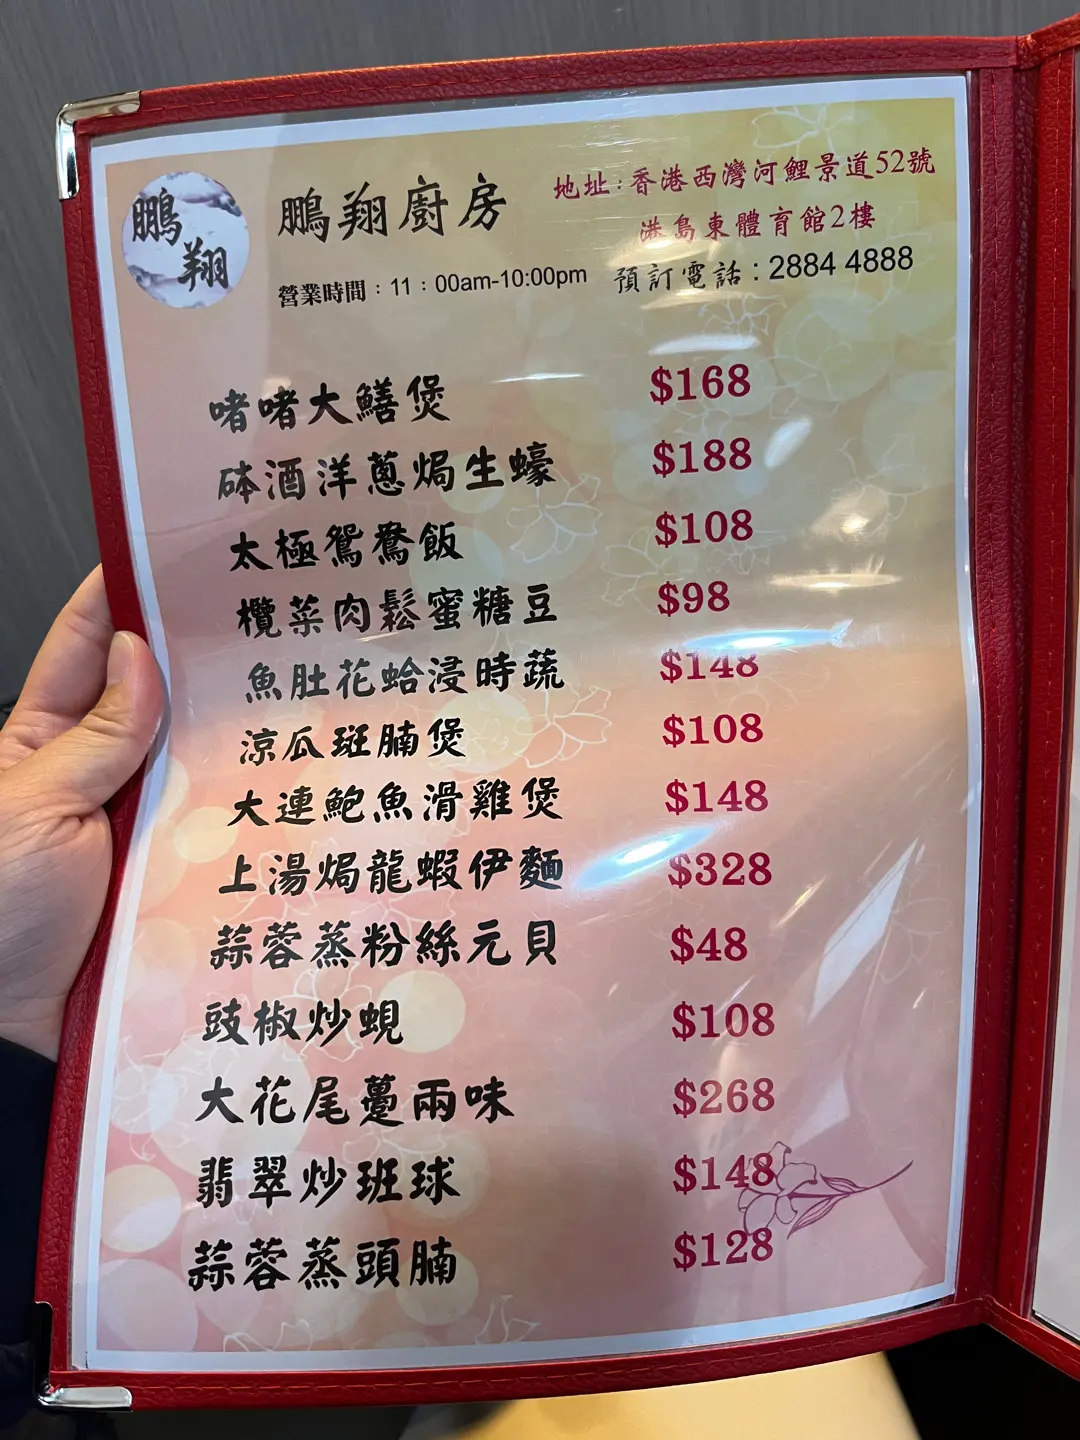 鵬翔
鵬翔廚房
地址:香港西灣河鯉景道52號
港島東體育館2樓
營業時間：11：00am-10:00pm
預訂電話：2884 4888
啫啫大鱔煲 $168
砵酒洋蔥焗生蠔 $188
太極鴛鴦飯 $108
欖菜肉鬆蜜糖豆 $98
魚肚花蛤浸時蔬 $148
涼瓜斑腩煲 $108
大連鮑魚滑雞煲 $148
上湯焗龍蝦伊麵 $328
蒜蓉蒸粉絲元貝 $48
豉椒炒蜆 $108
大花尾躉兩味 $268
翡翠炒班球 $148
蒜蓉蒸頭腩 $128